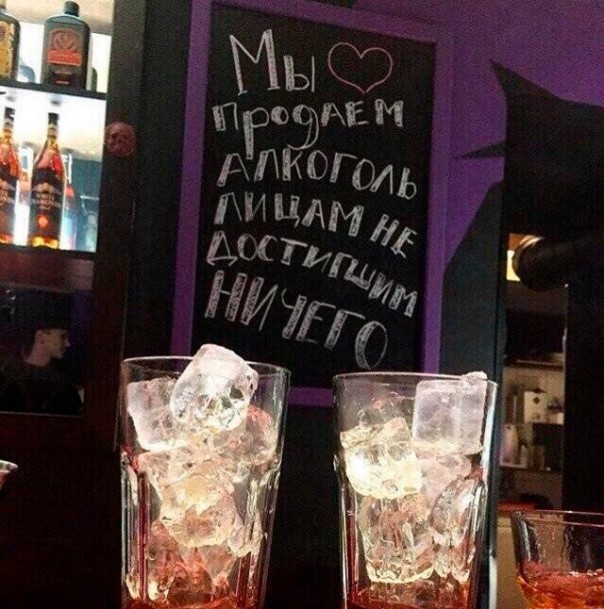 Мы
продаем
алкоголь
лицам не
достигшим
ничего